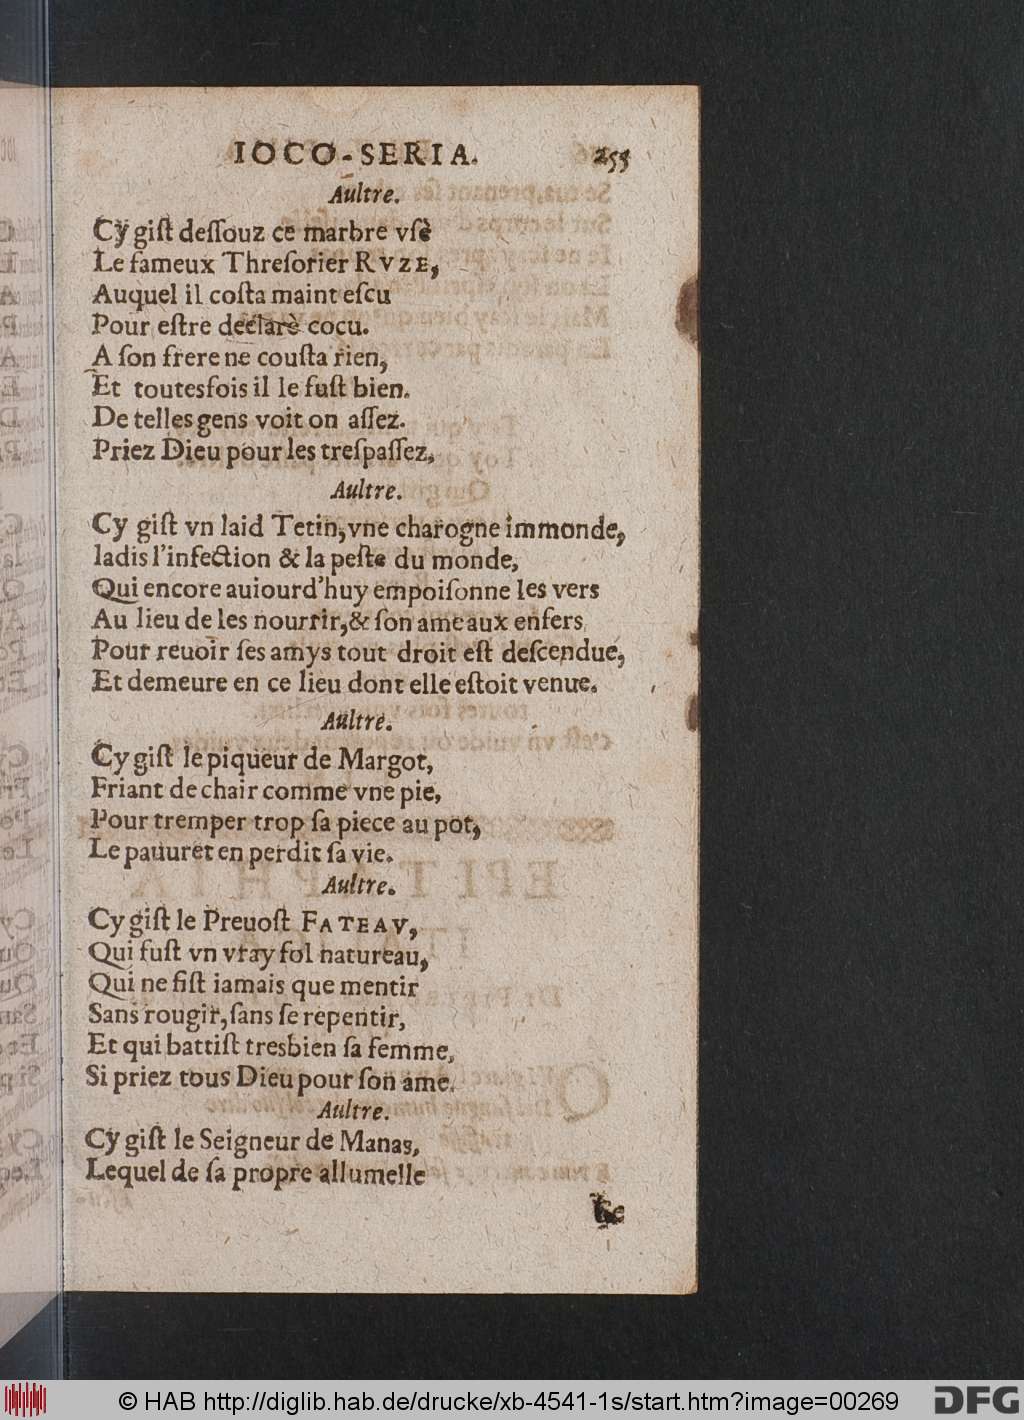 IOCO-SERIA. 255
Aultre.
Cy giſt deſſouz ce marbre vſè
Le fameux Threſorier RVZE,
Auquel il coſta maint eſcu
Pour eſtre declarè cocu.
A ſon frere ne couſta rien,
Et toutesfois il le fuſt bien.
De telles gens voit on aſſez.
Priez Dieu pour les treſpaſſez,
Aultre.
Cy giſt vn laid Tetin, vne charogne immonde,
Iadis l'infection & la peſte du monde,
Qui encore auiourd'huy empoiſonne les vers
Au lieu de les nourrir, & ſon ame aux enfers
Pour reuoir ſes amys tout droit eſt deſcendue,
Et demeure en ce lieu dont elle eſtoit venue.
Aultre.
Cy giſt le piqueur de Margot,
Friant de chair comme vne pie,
Pour tremper trop ſa piece au pot,
Le pauuret en perdit ſa vie.
Aultre.
Cy giſt le Preuoſt FATEAV,
Qui fuſt vn vray fol natureau,
Qui ne fiſt iamais que mentir
Sans rougir, ſans ſe repentir,
Et qui battiſt tresbien ſa femme,
Si priez tous Dieu pour ſon ame.
Aultre.
Cy giſt le Seigneur de Manas,
Lequel de ſa propre allumelle
© HAB http://diglib.hab.de/drucke/xb-4541-1s/start.htm?image=00269
DFG